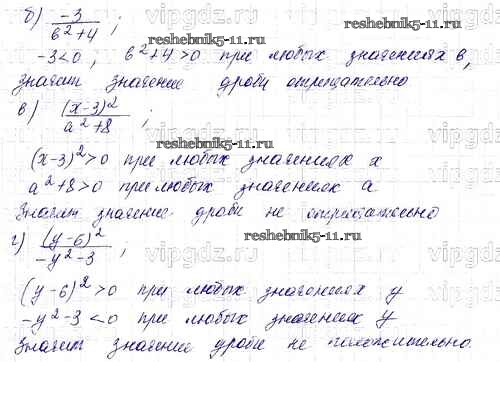 б) -3/(b²+4) ;
reshebnik5-11.ru
-3<0 ; b²+4>0 при любых значениях b,
значит значение дроби отрицательно
reshebnik5-11.ru
в) (x-3)²/(a²+8) ;
(x-3)²>0 при любых значениях x
a²+8>0 при любых значениях a
Значит значение дроби не отрицательно
г) (y-6)²/(-y²-3) ;
reshebnik5-11.ru
(y-6)²>0 при любых значениях y
-y²-3<0 при любых значениях y
Значит значение дроби не положительно.
vipgdz.ru